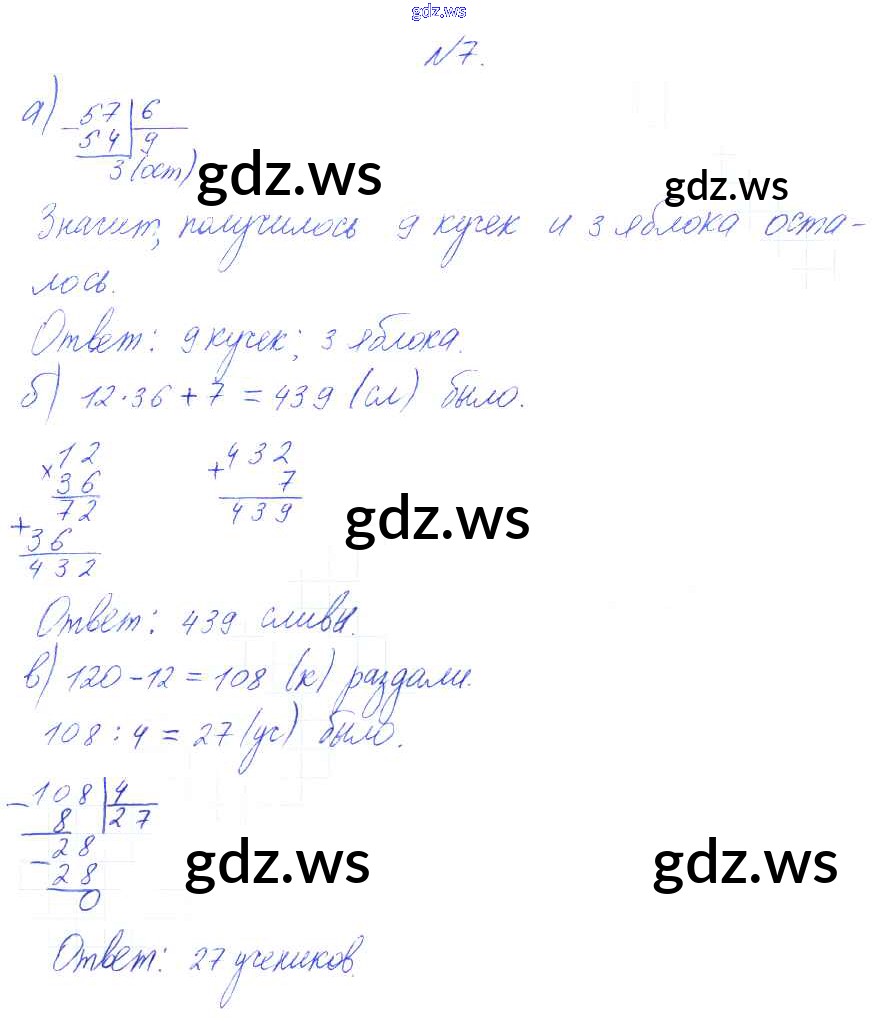 gdz.ws
N7.
а) 57 | 6
− 54 | 9
3 (ост)
gdz.ws
gdz.ws
Значит, получилось 9 кучек и 3 яблока оста-
лось.
Ответ: 9 кучек; 3 яблока.
б) 12·36 + 7 = 439 (сл) было.
× 12
36
72
+ 36
432
+ 432
7
439
gdz.ws
Ответ: 439 сливы.
в) 120 − 12 = 108 (к) раздали.
108 : 4 = 27 (уч) было.
− 108 | 4
8 | 27
− 28
28
0
gdz.ws
gdz.ws
Ответ: 27 учеников.